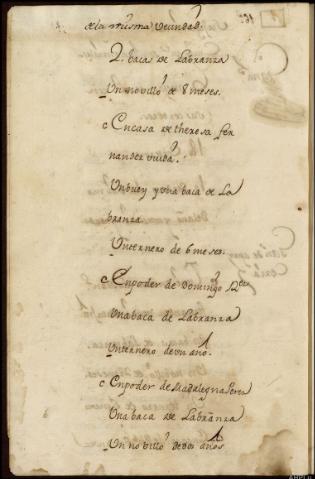 de la misma vecindad.
2. bacas de Labranza
Un novillo de 8 meses.
En casa de theresa fer
nandez viuda.
Un buey y una baca de La
branza.
Un ternero de 6 meses.
En poder de Domingo
Una baca de Labranza
Un ternero de un año.
En poder de Madalegna Perez
Una baca de Labranza
Un nobillo de dos años